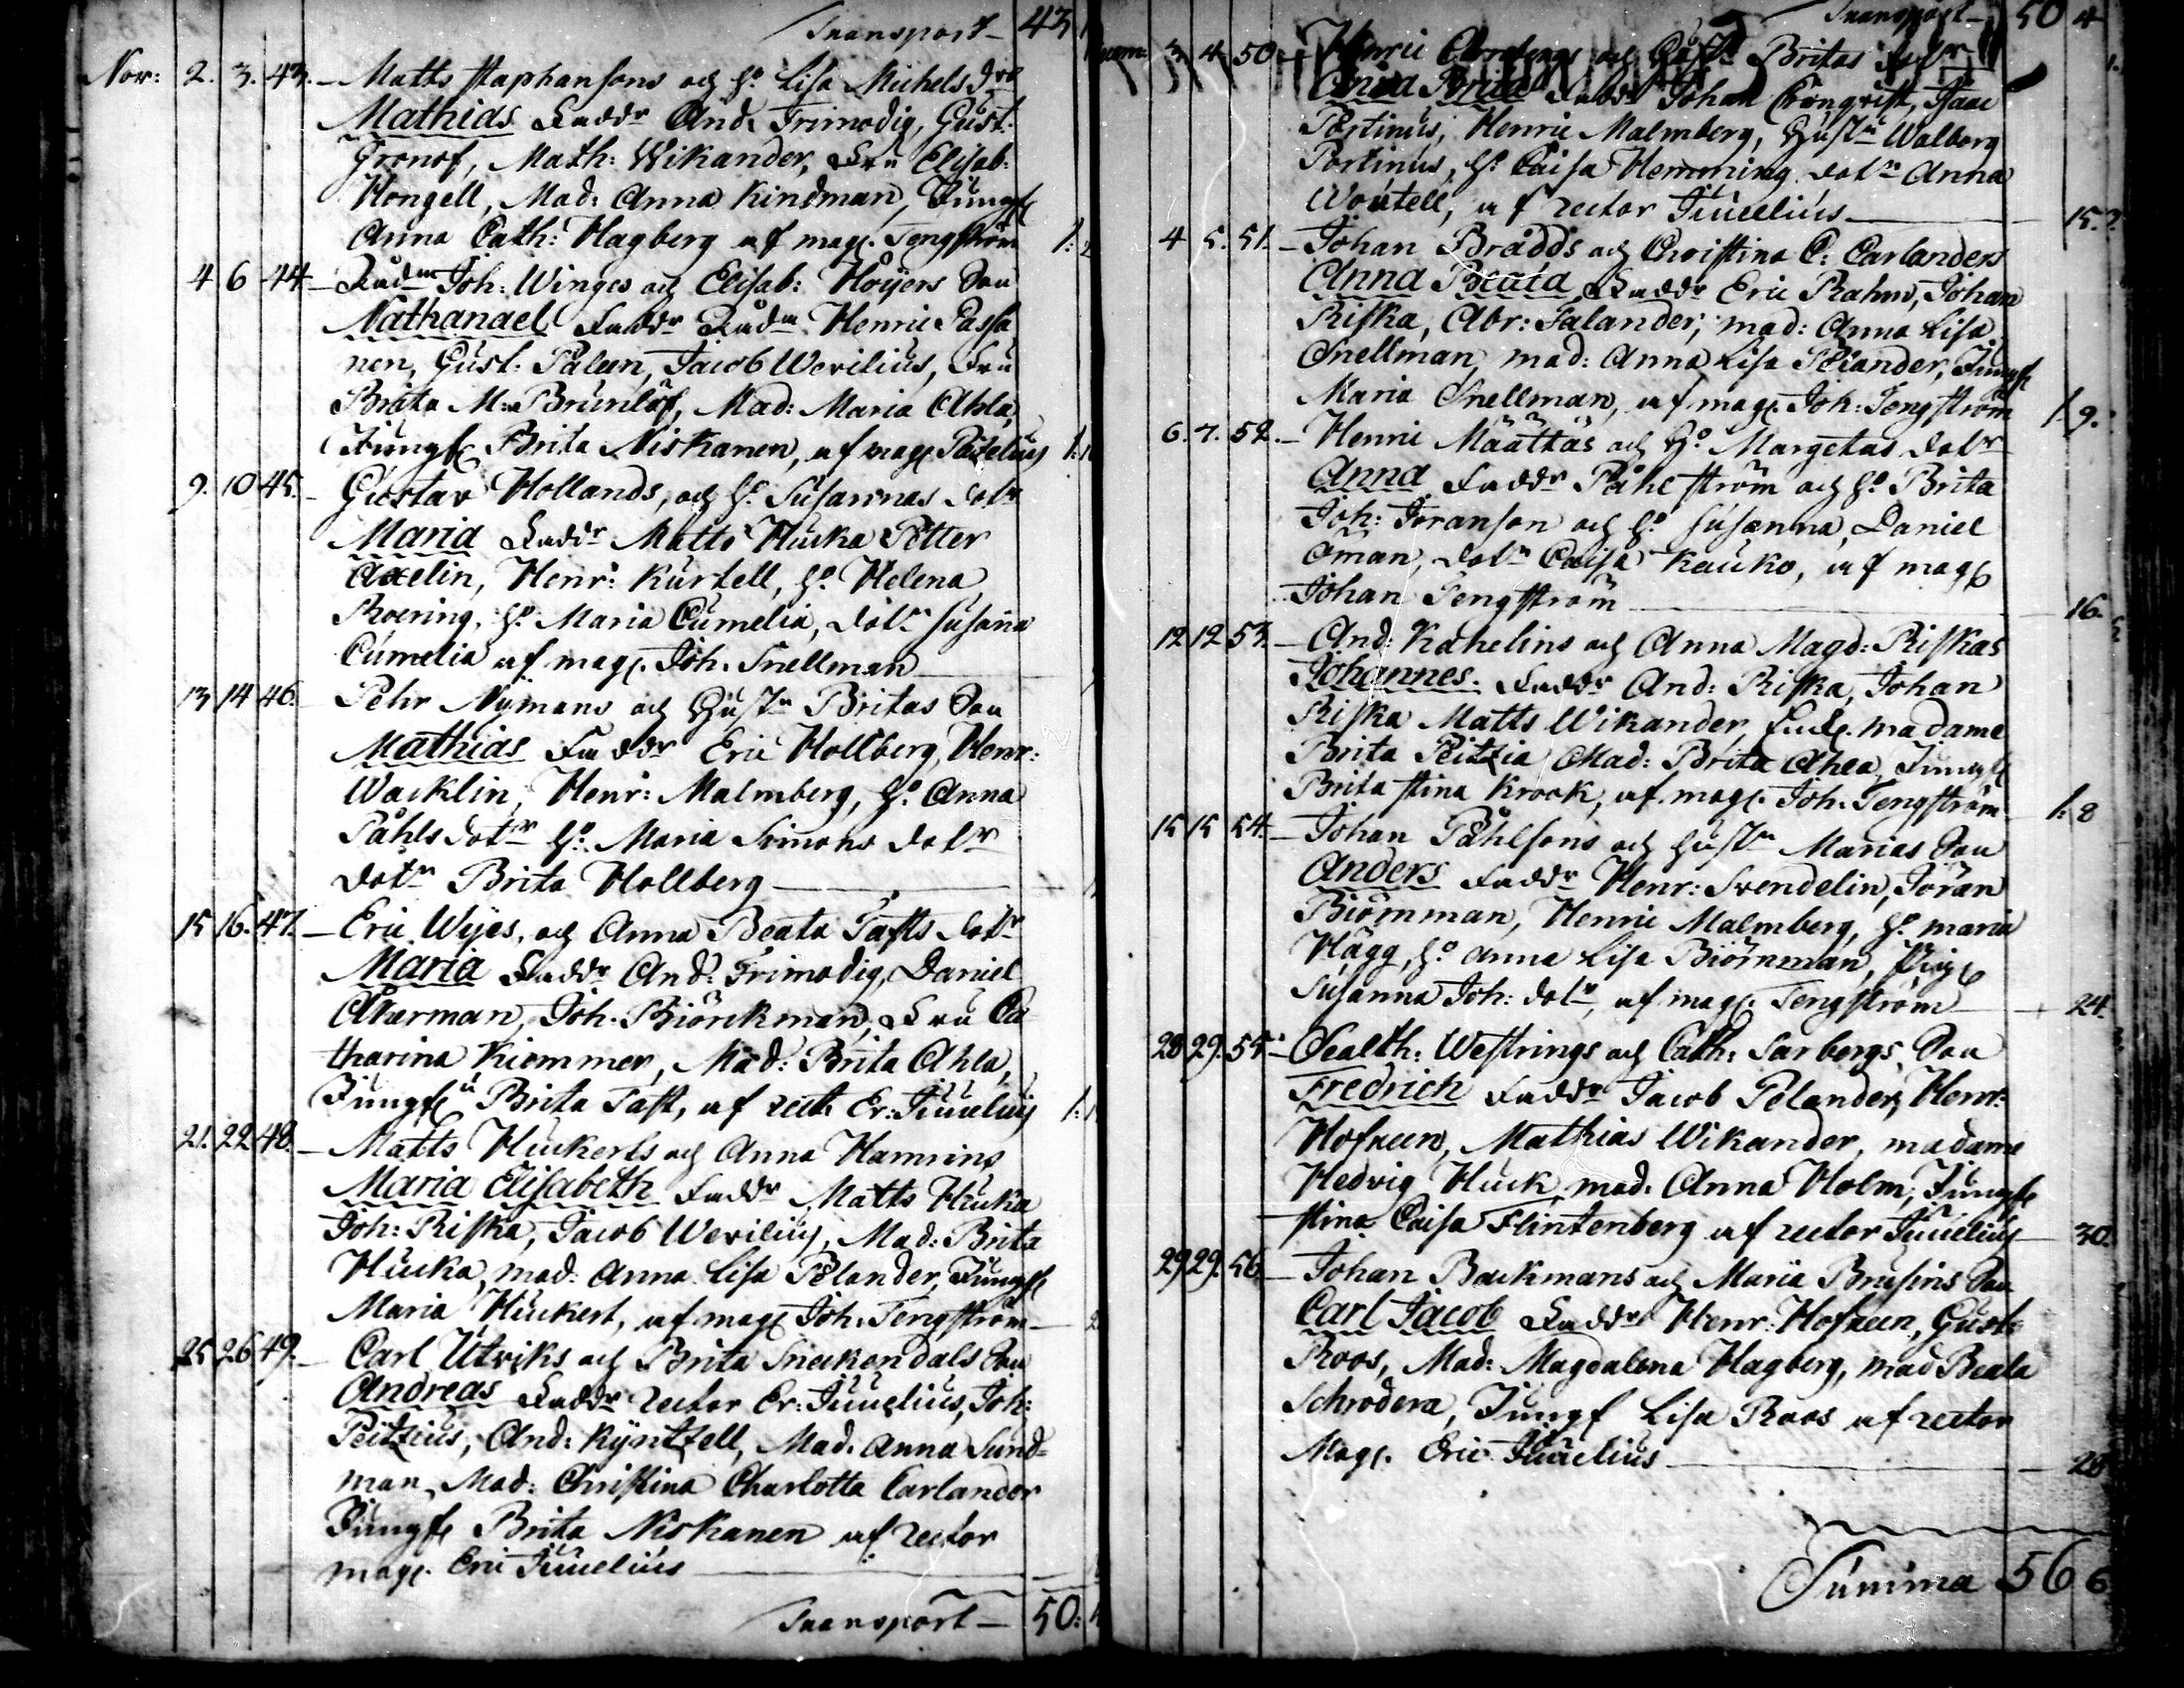 Transport 43
Nov: 2. 3. 43. Matts Staphansons och h:o Lisa Michels dr
Mathias Faddr And: Frimodig, Gust:
Gronof, Math: Wikander, Fru Elisab:
Hongell, Mad: Anna Kindman, Jungf
Anna Cath: Hagberg af mag. Tengström
4 6 44 Rådm Joh: Winges och Elisab: Höijers Son
Nathanael Faddr Rådm Henric Passa
nen, Gust: Paleen, Jacob Werilius, Fru
Brita M: Brunlöf, Mad: Maria Ahla,
Jungf Brita Niskanen, af mag
9. 10 45. Gustav Hollands, och h:o Susannas dotr
Maria Faddr Matts Hucka Petter
Axelin, Henr: Kurtell, h:o Helena
Roering, h:o Maria Cumelia, dotn Susana
Cumelia af mag. Joh. Snellman
13 14 46. Pehr Nymans och Hustn Britas Son
Mathias Faddr Eric Hollberg, Henr:
Wacklin, Henr: Malmberg, h:o Anna
Påhls dotr h:o Maria Simons dotr
dotn Brita Hollberg
15 16. 47. Eric Wijes, och Anna Beata Tafts dotr
Maria Faddr And: Frimodig, Daniel
Åkerman, Joh. Biörckman, Fru Ca
tharina Kiemmer, Mad: Brita Ahla,
Jungf Brita Taft, af rect. Er: Juuelius
21. 22 48. Matts Huckerts och Anna Hamrins
Maria Elisabeth Faddr Matts Hucka
Joh: Riska, Jacob Werilius, Mad: Brita
Hucka, mad: Anna Lisa Pelander, Jungf
Maria Huckert, af mag Joh. Tengström
25 26 49. Carl Utriks och Brita Sneckendals Son
Andreas Faddr rector Er: Juuelius, Joh:
Peitzius, And: Kyntzell, Mad. Anna Sund=
man, Mad: Christina Charlotta Carlander
Jungf Brita Niskanen af rector
mag. Eric Juuelius
Transport 50:
Transport 50 4
3 4 50 Henric och Hustn Britas dotr
Anna Brita Faddr Johan Cronqvist, Isaac
Portinus, Henric Malmberg, Hustn Walborg
Portinus, h:o Caisa Hemming dotn Anna
af rector Juuelius 15.
4 5. 51. Johan Brådds och Christina C: Carlanders
Anna Beata, Faddr Eric Rahm, Johan
Riska, Abr: Falander, mad: Anna Lisa
Snellman, mad: Anna Lisa Pelander, Jungf
Maria Snellman, af mag. Joh: Tengström 1. 9.
6. 7. 52. Henric Määttäs och h:o Margetas dotr
Anna Faddr Påhl Ström och h:o Brita
Joh: Joranson och h:o Susanna, Daniel
Öman, dotn Caisa Kauko, af mag
Johan Tengström 16.
12 12 53. And: Kahelins och Anna Magd: Riskas
Johannes. Faddr And: Riska, Johan
Riska Matts Wikander, madame
Brita Peitzia Mad: Brita Ahla, Jungf
Brita Stina Krook, af mag. Joh. Tengström 1: 8
15 15 54. Johan Påhlsons och Hustn Marias Son
Anders Faddr Henr: Svendelin, Jöran
Biörnman, Henric Malmberg, h:o Maria
Hägg, h:o Anna Lisa Biörnman, Pig
Susanna Joh: dotr, af mag. Tengström 24.
28 29. 55. Sealth: Westrings och Cath: Sarbergs Son
Fredrich Faddr Jacob Pelander, Henr:
Hofreen, Mathias Wikander, madame
Hedvig Huck, mad. Anna Holm, Jungf
Stina Caisa Flintenberg af rector Juuelius 30.
29 29. 56 Johan Backmans och Maria Brusins Son
Carl Jacob Faddr Henr: Hofreen, Gust:
Roos, Mad: Magdalena Hagberg, mad Beata
Schrodera, Jungf Lisa Roos af rector
Mag. Eric Juuelius 28
Summa 56 6